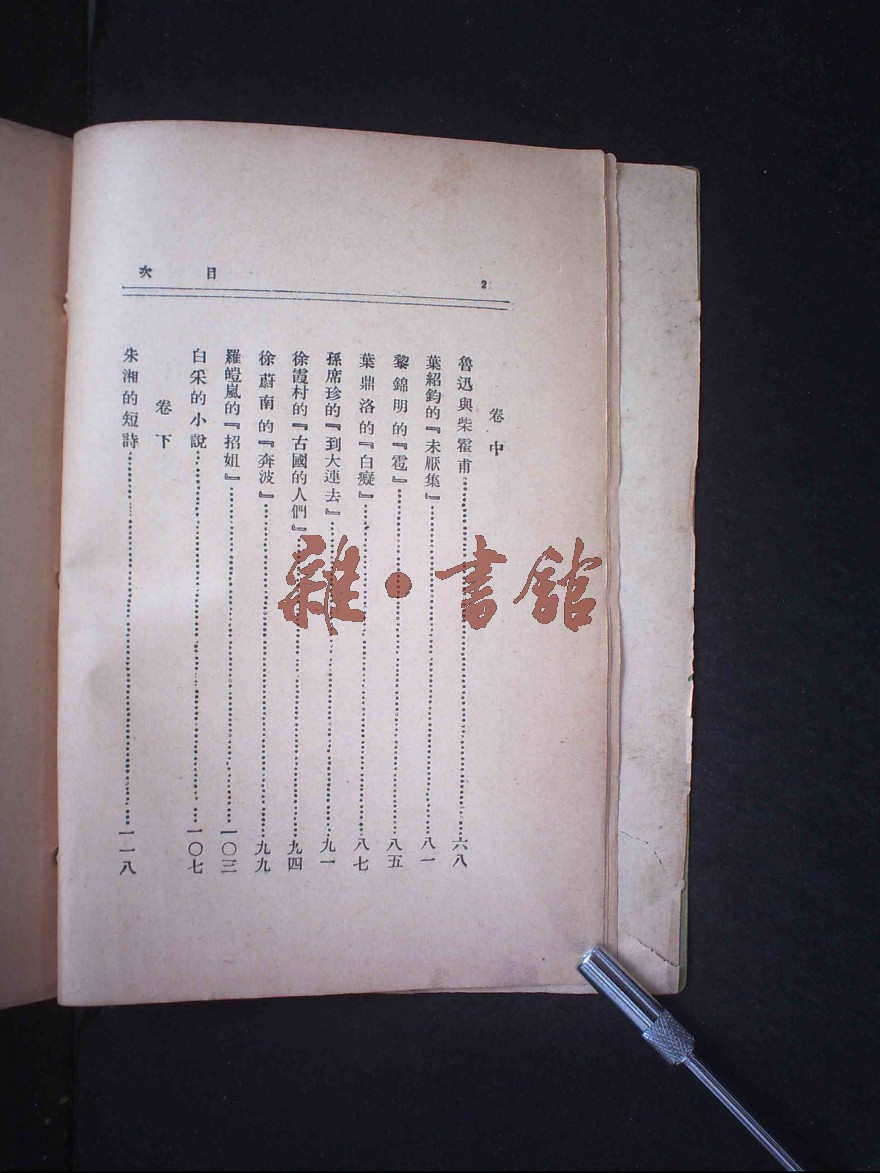 目次
2
卷中
魯迅與柴霍甫……六八
葉紹鈞的『未厭集』……八一
黎錦明的『雹』……八五
葉鼎洛的『白癡』……八七
孫席珍的『到大連去』……九一
徐霞村的『古國的人們』……九四
徐蔚南的『奔波』……九九
羅皚嵐的『招姐』……一〇三
白采的小說……一〇七
卷下
朱湘的短詩……一一八
雜·書館